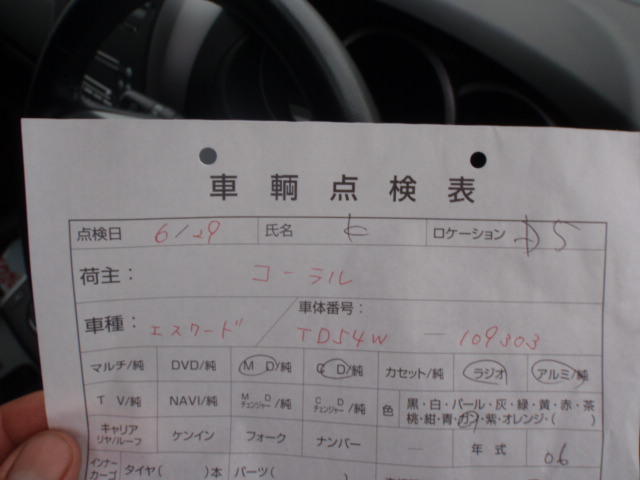 車輌点検表
点検日 6/29 氏名 ロケーション
荷主： コーラル
車種： エスクード 車体番号： TD54W - 109303
マルチ/純 DVD/純 M D/純 C D/純 カセット/純 ラジオ アルミ/純
T V/純 NAVI/純 M D チェンジャー/純 C D チェンジャー/純 色 黒・白・パール・灰・緑・黄・赤・茶
桃・紺・青・ガン・紫・オレンジ・( )
キャリア リヤ/ルーフ ケンイン フォーク ナンバー 年式 06
インナーカーゴ タイヤ( )本 パーツ( )